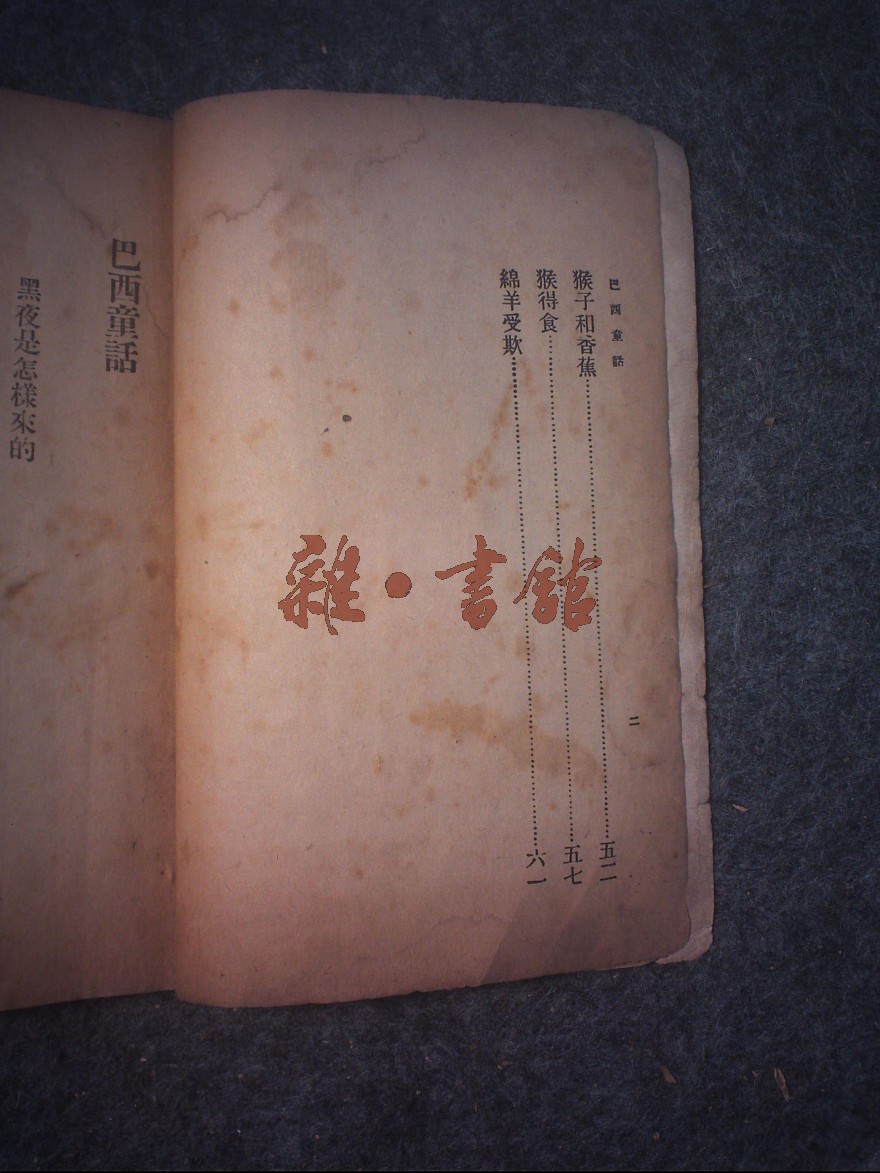 巴西童話
二
猴子和香蕉……五二
猴得食……五七
綿羊受欺……六一
巴西童話
黑夜是怎樣來的
雜·書館